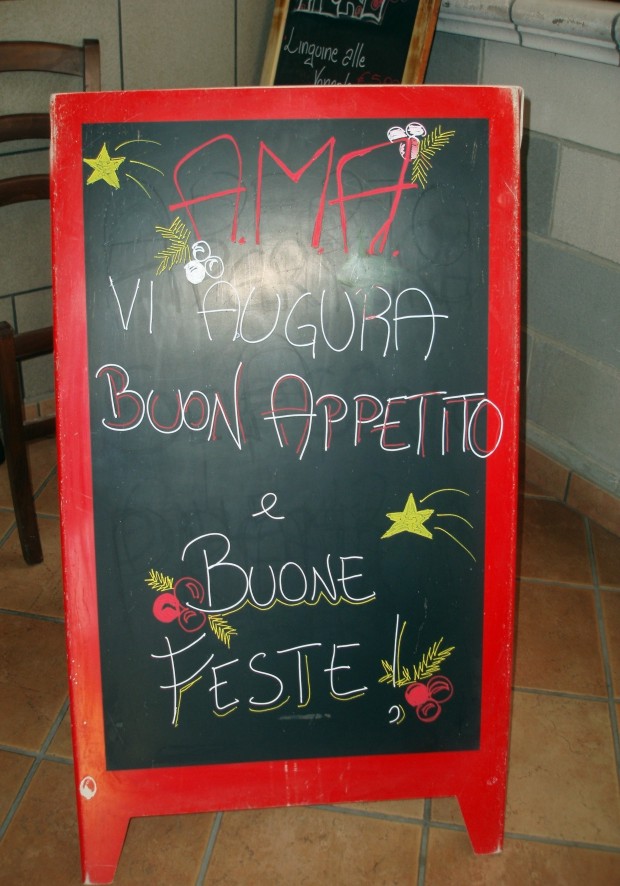 Linguine alle
A.M.A.
VI AUGURA
BUON APPETITO
e
BUONE
FESTE!